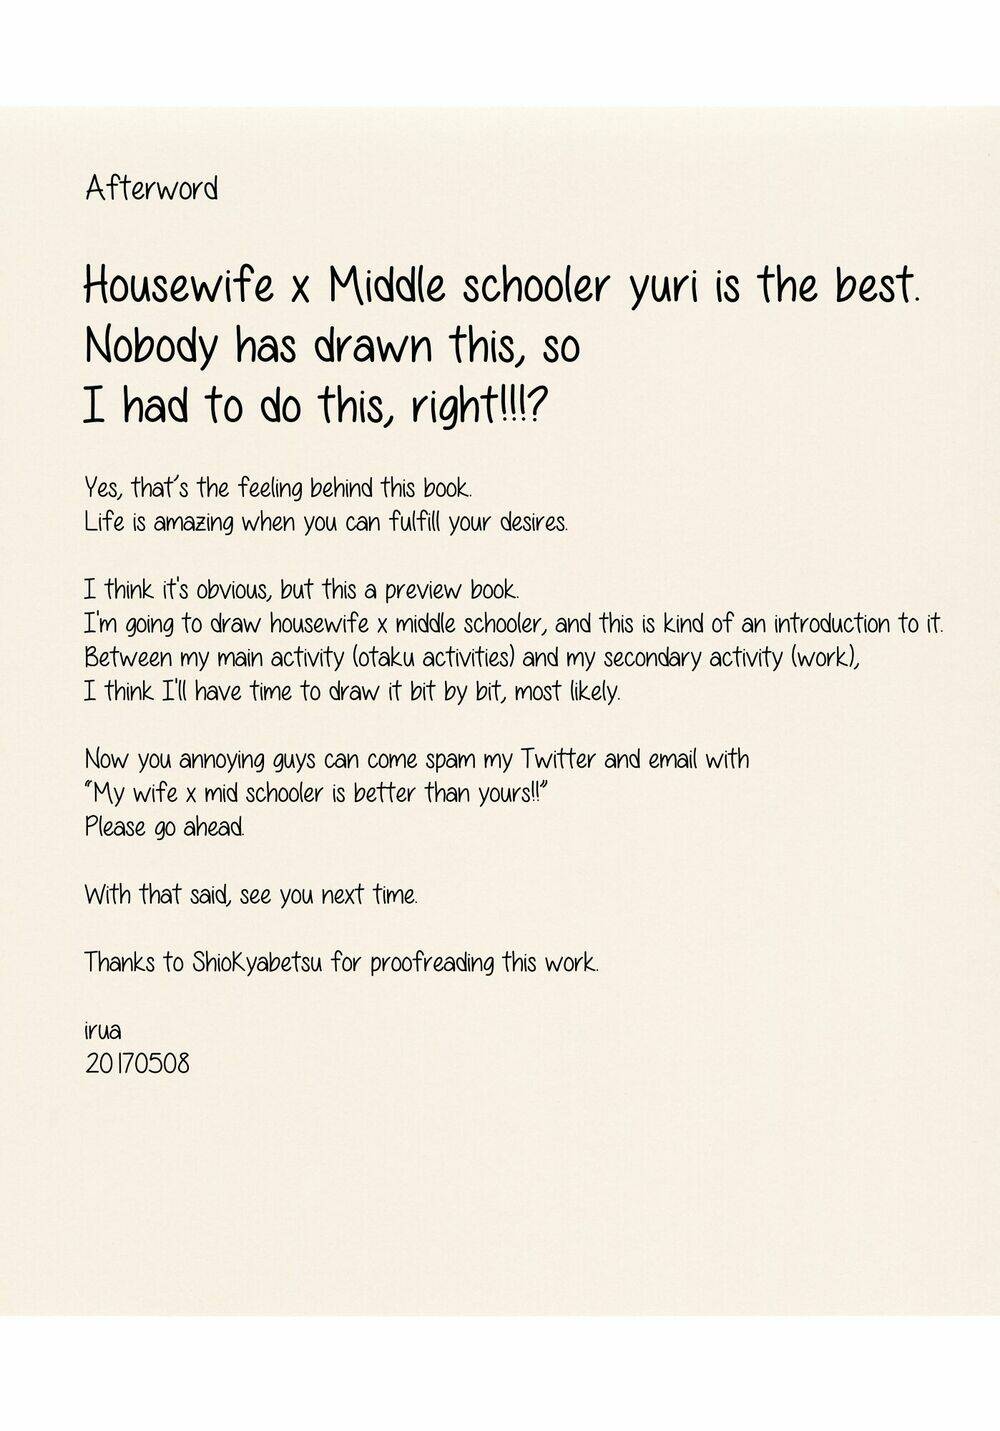 Afterword
Housewife x Middle schooler yuri is the best.
Nobody has drawn this, so
I had to do this, right!!!?
Yes, that's the feeling behind this book.
Life is amazing when you can fulfill your desires.
I think it's obvious, but this a preview book.
I'm going to draw housewife x middle schooler, and this is kind of an introduction to it.
Between my main activity (otaku activities) and my secondary activity (work),
I think I'll have time to draw it bit by bit, most likely.
Now you annoying guys can come spam my Twitter and email with
“My wife x mid schooler is better than yours!!”
Please go ahead.
With that said, see you next time.
Thanks to ShioKyabetsu for proofreading this work.
irua
20170508